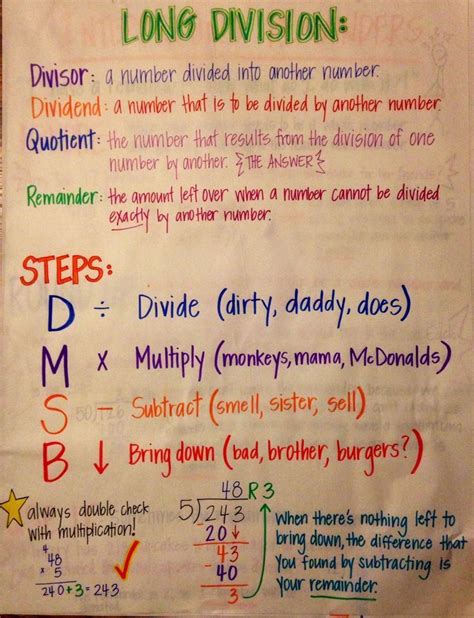 LONG DIVISION:
Divisor: a number divided into another number.
Dividend: a number that is to be divided by another number.
Quotient: the number that results from the division of one
number by another. {THE ANSWER}
Remainder: the amount left over when a number cannot be divided
exactly by another number.
STEPS:
D ÷ Divide (dirty, daddy, does)
M x Multiply (monkeys, mama, McDonalds)
S - Subtract (smell, sister, sell)
B ↓ Bring down (bad, brother, burgers?)
always double check
with multiplication!
4
48
x 5
240+3=243
48 R3
5)243
20↓
-43
40
3
When there's nothing left to
bring down, the difference that
you found by subtracting is
your remainder.